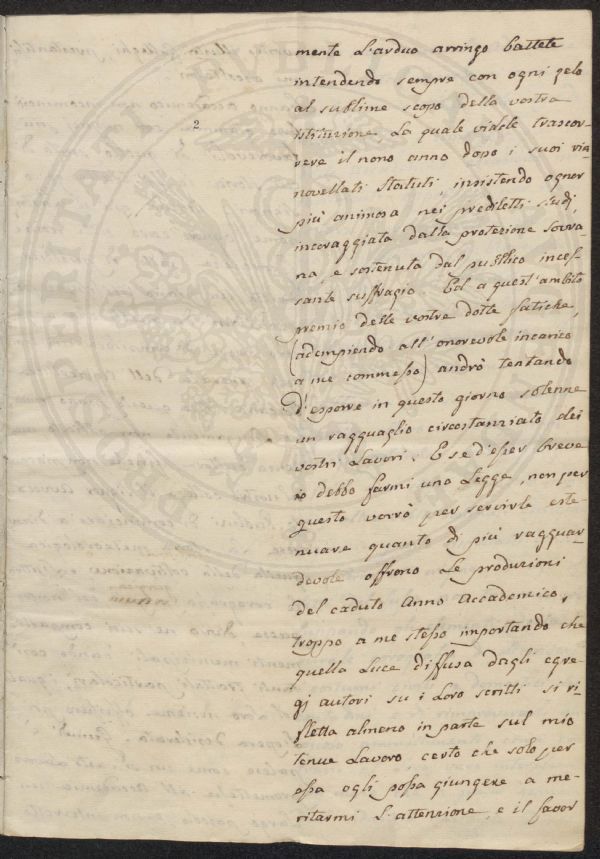 2
mente l'arduo arringo battete
intendendo sempre con ogni zelo
al sublime scopo della vostra
Istituzione, La quale videte trascor-
rere il nono anno dopo i suoi rin
novellati Statuti, insistendo ognor
più animosa nei prediletti studj,
incoraggiata dalla protezione Sovra
na, e sostenuta dal pubblico inces-
sante suffragio. Ed a quest'ambito
premio delle vostre dotte fatiche,
(adempiendo all'onorevole incarico
a me commesso) andrò tentando
d'esporre in questo giorno solenne
un ragguaglio circostanziato dei
vostri Lavori. E se d'esser breve
io debbo farmi una Legge, non per
questo vorrò per servirla este-
nuare quanto di più ragguar-
devole offrono Le produzioni
del caduto Anno Accademico,
troppo a me stesso importando che
quella Luce diffusa dagli egre-
gj autori su i Loro scritti si ri-
fletta almeno in parte sul mio
tenue Lavoro, certo che solo per
essa egli possa giungere a me-
ritarmi L'attenzione, e il favor